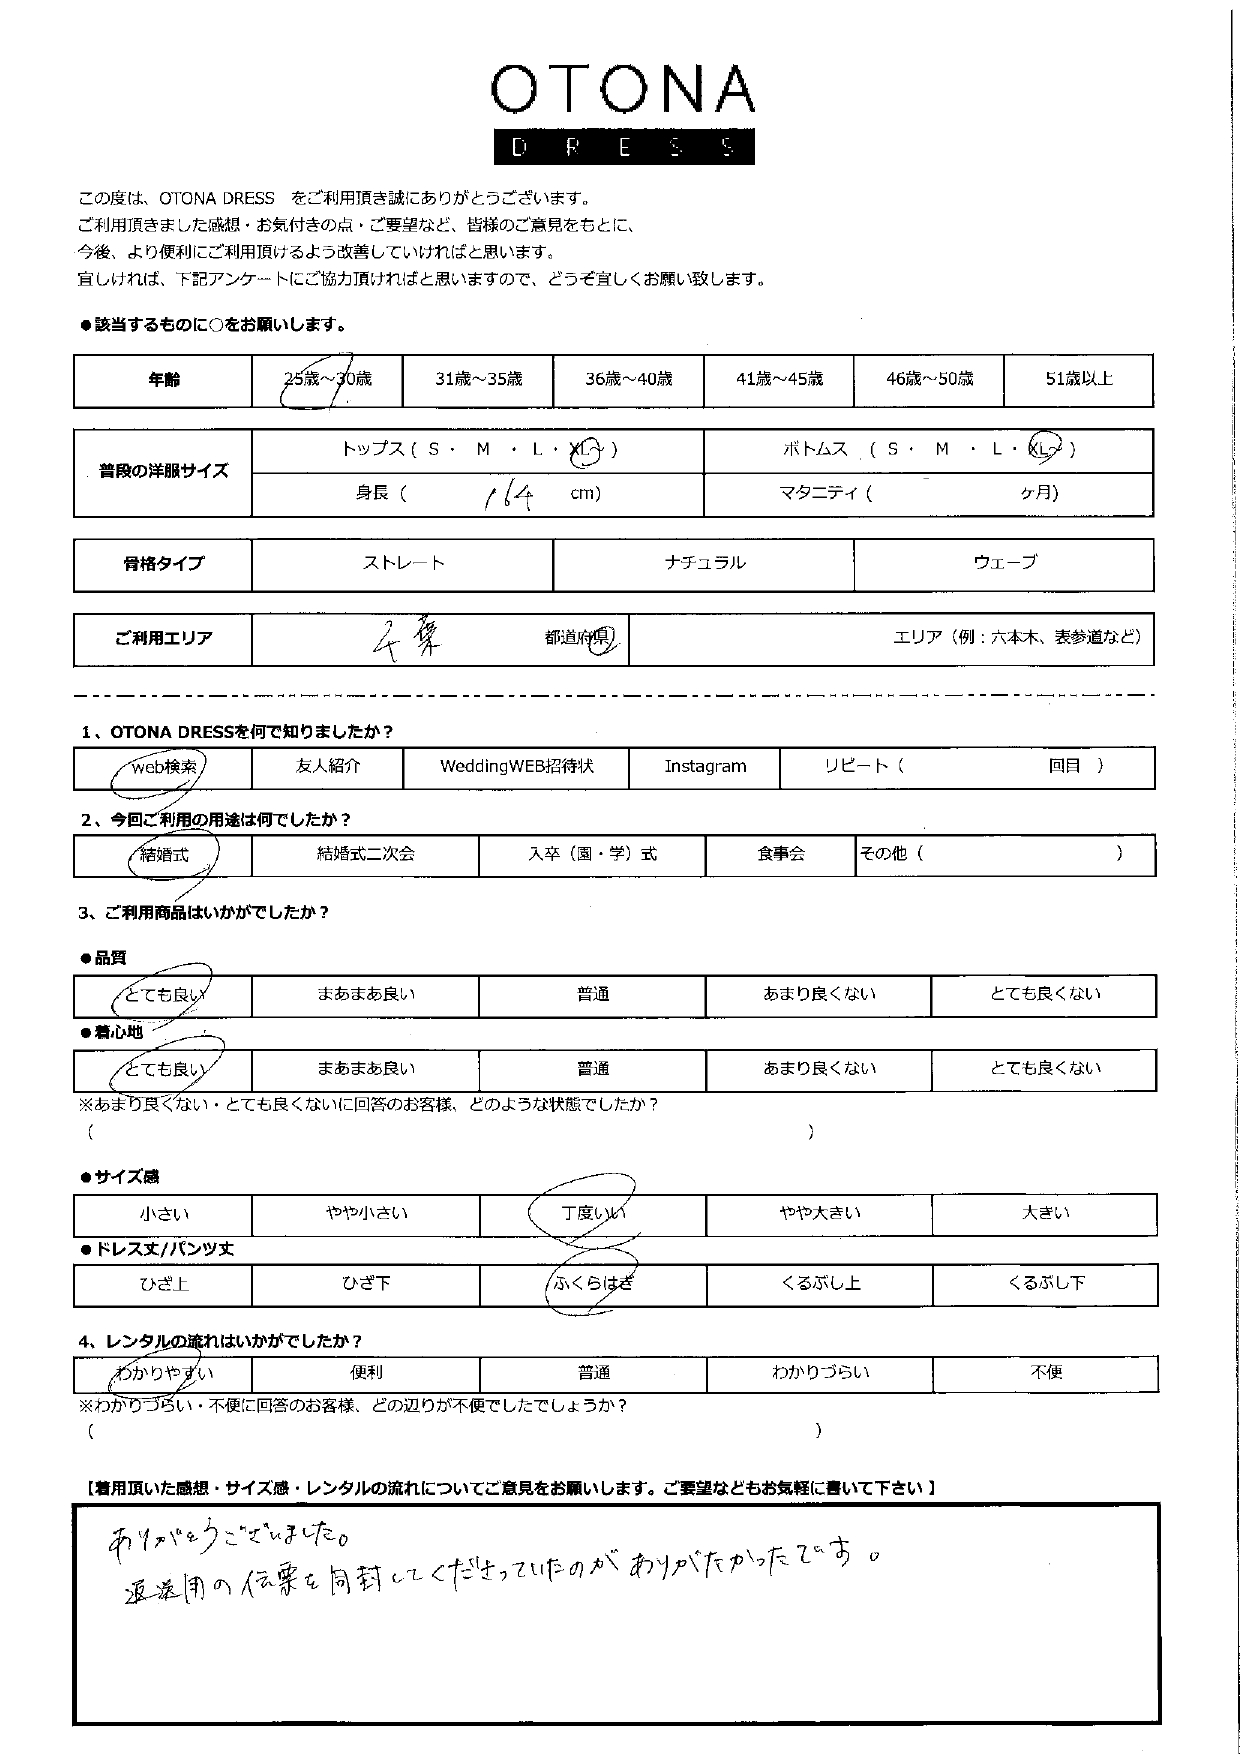 OTONA
DRESS
この度は、OTONA DRESS　をご利用頂き誠にありがとうございます。
ご利用頂きました感想・お気付きの点・ご要望など、皆様のご意見をもとに、
今後、より便利にご利用頂けるよう改善していければと思います。
宜しければ、下記アンケートにご協力頂ければと思いますので、どうぞ宜しくお願い致します。
●該当するものに○をお願いします。
年齢 25歳～30歳 31歳～35歳 36歳～40歳 41歳～45歳 46歳～50歳 51歳以上
普段の洋服サイズ
トップス ( S ・ M ・ L ・ XL～ ) ボトムス ( S ・ M ・ L ・ XL～ )
身長 ( 164 cm) マタニティ ( ヶ月)
骨格タイプ ストレート ナチュラル ウェーブ
ご利用エリア 千葉 都道府県 エリア（例：六本木、表参道など）
1、OTONA DRESSを何で知りましたか？
web検索 友人紹介 WeddingWEB招待状 Instagram リピート（ 回目 ）
2、今回ご利用の用途は何でしたか？
結婚式 結婚式二次会 入卒（園・学）式 食事会 その他（ ）
3、ご利用商品はいかがでしたか？
●品質
とても良い まあまあ良い 普通 あまり良くない とても良くない
●着心地
とても良い まあまあ良い 普通 あまり良くない とても良くない
※あまり良くない・とても良くないに回答のお客様、どのような状態でしたか？
（ ）
●サイズ感
小さい やや小さい 丁度いい やや大きい 大きい
●ドレス丈/パンツ丈
ひざ上 ひざ下 ふくらはぎ くるぶし上 くるぶし下
4、レンタルの流れはいかがでしたか？
わかりやすい 便利 普通 わかりづらい 不便
※わかりづらい・不便に回答のお客様、どの辺りが不便でしたでしょうか？
（ ）
【着用頂いた感想・サイズ感・レンタルの流れについてご意見をお願いします。ご要望などもお気軽に書いて下さい】
ありがとうございました。
返送用の伝票を同封してくださっていたのがありがたかったです。